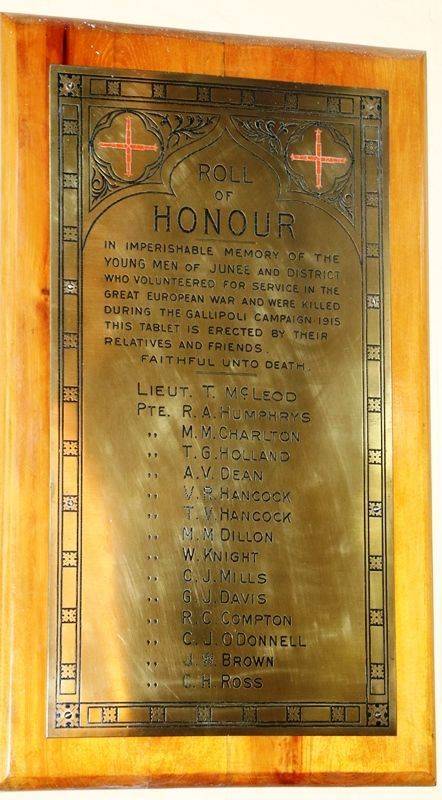 ROLL
OF
HONOUR
IN IMPERISHABLE MEMORY OF THE
YOUNG MEN OF JUNEE AND DISTRICT
WHO VOLUNTEERED FOR SERVICE IN THE
GREAT EUROPEAN WAR AND WERE KILLED
DURING THE GALLIPOLI CAMPAIGN 1915
THIS TABLET IS ERECTED BY THEIR
RELATIVES AND FRIENDS.
FAITHFUL UNTO DEATH.
LIEUT. T. McLEOD
PTE. R. A. HUMPHRYS
" M. M. CHARLTON
" T. G. HOLLAND
" A. V. DEAN
" V. R. HANCOCK
" T. V. HANCOCK
" M. M DILLON
" W. KNIGHT
" C. J. MILLS
" G. J. DAVIS
" R. C. COMPTON
" C. J. O'DONNELL
" J. BROWN
" C. H. ROSS